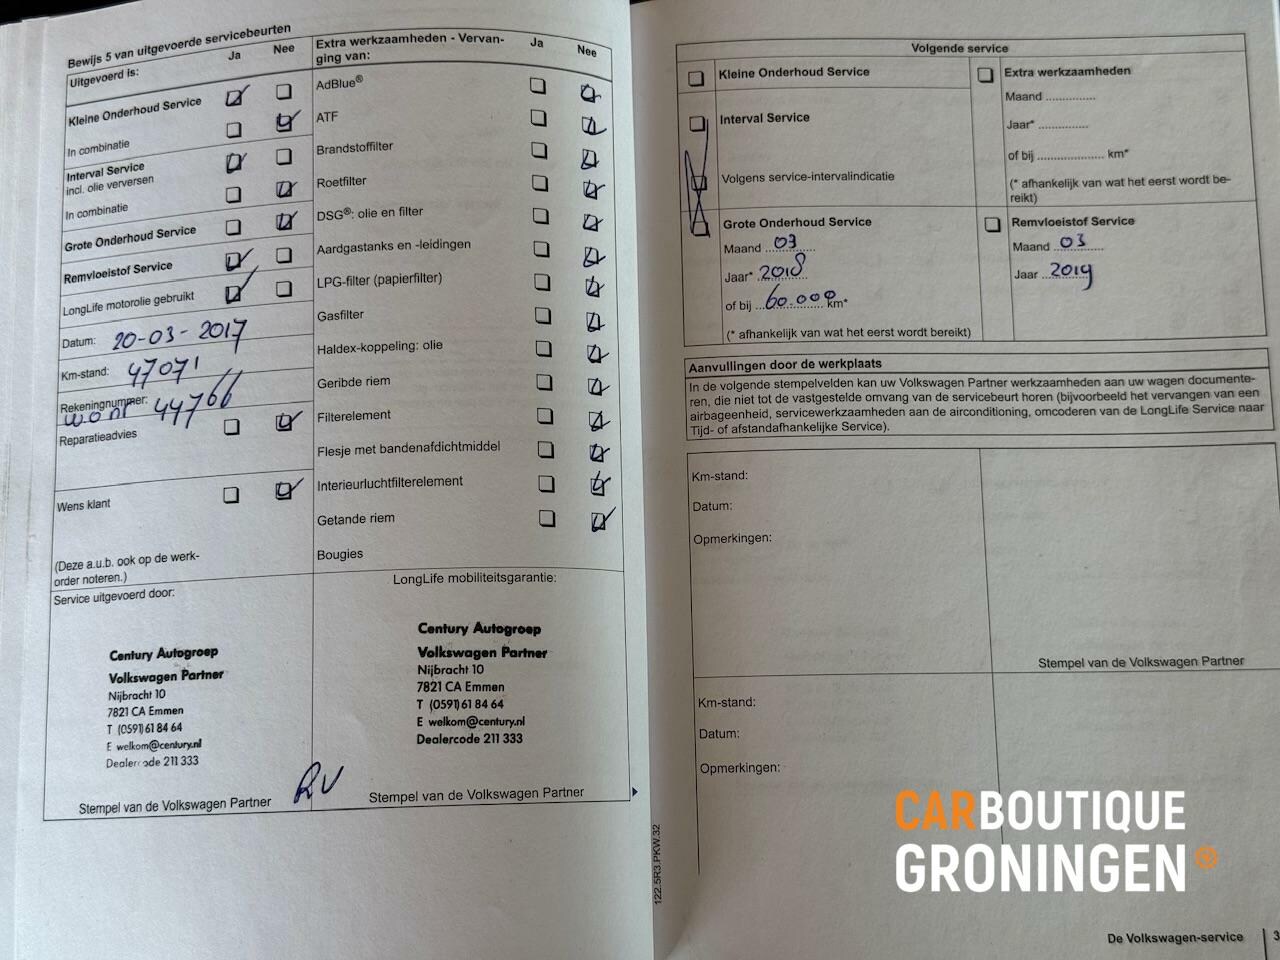 Bewijs 5 van uitgevoerde servicebeurten
Uitgevoerd is:
Ja
Nee
Kleine Onderhoud Service
In combinatie
Interval Service
incl. olie verversen
In combinatie
Grote Onderhoud Service
Remvloeistof Service
LongLife motorolie gebruikt
Datum: 20-03-2017
Km-stand: 47071
Rekeningnummer:
44766
Reparatieadvies
Wens klant
(Deze a.u.b. ook op de werk-
order noteren.)
Service uitgevoerd door:
Century Autogroep
Volkswagen Partner
Nijbracht 10
7821 CA Emmen
T (0591) 61 84 64
E welkom@century.nl
Dealercode 211 333
Stempel van de Volkswagen Partner
RV
Extra werkzaamheden - Vervan-
ging van:
Ja
Nee
AdBlue®
ATF
Brandstoffilter
Roetfilter
DSG®: olie en filter
Aardgastanks en -leidingen
LPG-filter (papierfilter)
Gasfilter
Haldex-koppeling: olie
Geribde riem
Filterelement
Flesje met bandenafdichtmiddel
Interieurluchtfilterelement
Getande riem
Bougies
LongLife mobiliteitsgarantie:
Century Autogroep
Volkswagen Partner
Nijbracht 10
7821 CA Emmen
T (0591) 61 84 64
E welkom@century.nl
Dealercode 211 333
Stempel van de Volkswagen Partner
122.5R3.PKW.32
Volgende service
Kleine Onderhoud Service
Interval Service
Volgens service-intervalindicatie
Grote Onderhoud Service
Maand 03
Jaar* 2018
of bij 60.000 km*
(* afhankelijk van wat het eerst wordt bereikt)
Extra werkzaamheden
Maand ..............
Jaar* ..............
of bij ................... km*
(* afhankelijk van wat het eerst wordt be-
reikt)
Remvloeistof Service
Maand 03
Jaar 2019
Aanvullingen door de werkplaats
In de volgende stempelvelden kan uw Volkswagen Partner werkzaamheden aan uw wagen documente-
ren, die niet tot de vastgestelde omvang van de servicebeurt horen (bijvoorbeeld het vervangen van een
airbageenheid, servicewerkzaamheden aan de airconditioning, omcoderen van de LongLife Service naar
Tijd- of afstandafhankelijke Service).
Km-stand:
Datum:
Opmerkingen:
Stempel van de Volkswagen Partner
Km-stand:
Datum:
Opmerkingen:
CARBOUTIQUE
GRONINGEN
De Volkswagen-service
3